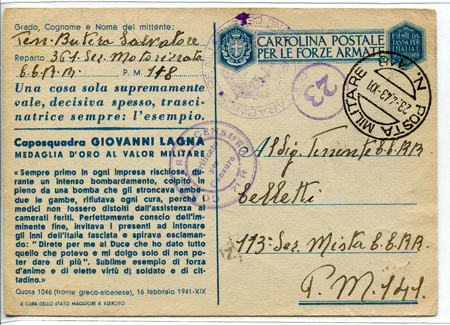 Grado, Cognome e Nome del mittente:
Ten. Butera Salvatore
Reparto 361. Sez. Motorizzata
CC.RR. P. M. 118
Una cosa sola supremamente
vale, decisiva spesso, trasci-
natrice sempre: l'esempio.
Caposquadra GIOVANNI LAGNA
MEDAGLIA D'ORO AL VALOR MILITARE
«Sempre primo in ogni impresa rischiosa, du-
rante un intenso bombardamento, colpito in
pieno da una bomba che gli stroncava ambe-
due le gambe, rifiutava ogni cura, perchè
medici non fossero distolti dall'assistenza ai
camerati feriti. Perfettamente conscio dell'im-
minente fine, invitava i presenti ad intonare
gli inni dell'Italia fascista e spirava esclaman-
do: "Direte per me al Duce che ho dato tutto
quello che potevo e mi dolgo solo di non po-
ter dare di più". Sublime esempio di forza
d'animo e di elette virtù di soldato e di cit-
tadino.»
Quota 1046 (fronte greco-albanese), 16 febbraio 1941-XIX
A CURA DELLO STATO MAGGIORE R. ESERCITO
CARTOLINA POSTALE
PER LE FORZE ARMATE
23
POSTA MILITARE N. 148
23.4.43 XXI
CENSURA
All Sig. Tenente CC.RR.
Belletti
113ª Sez. Mista CC.RR.
P. M. 141